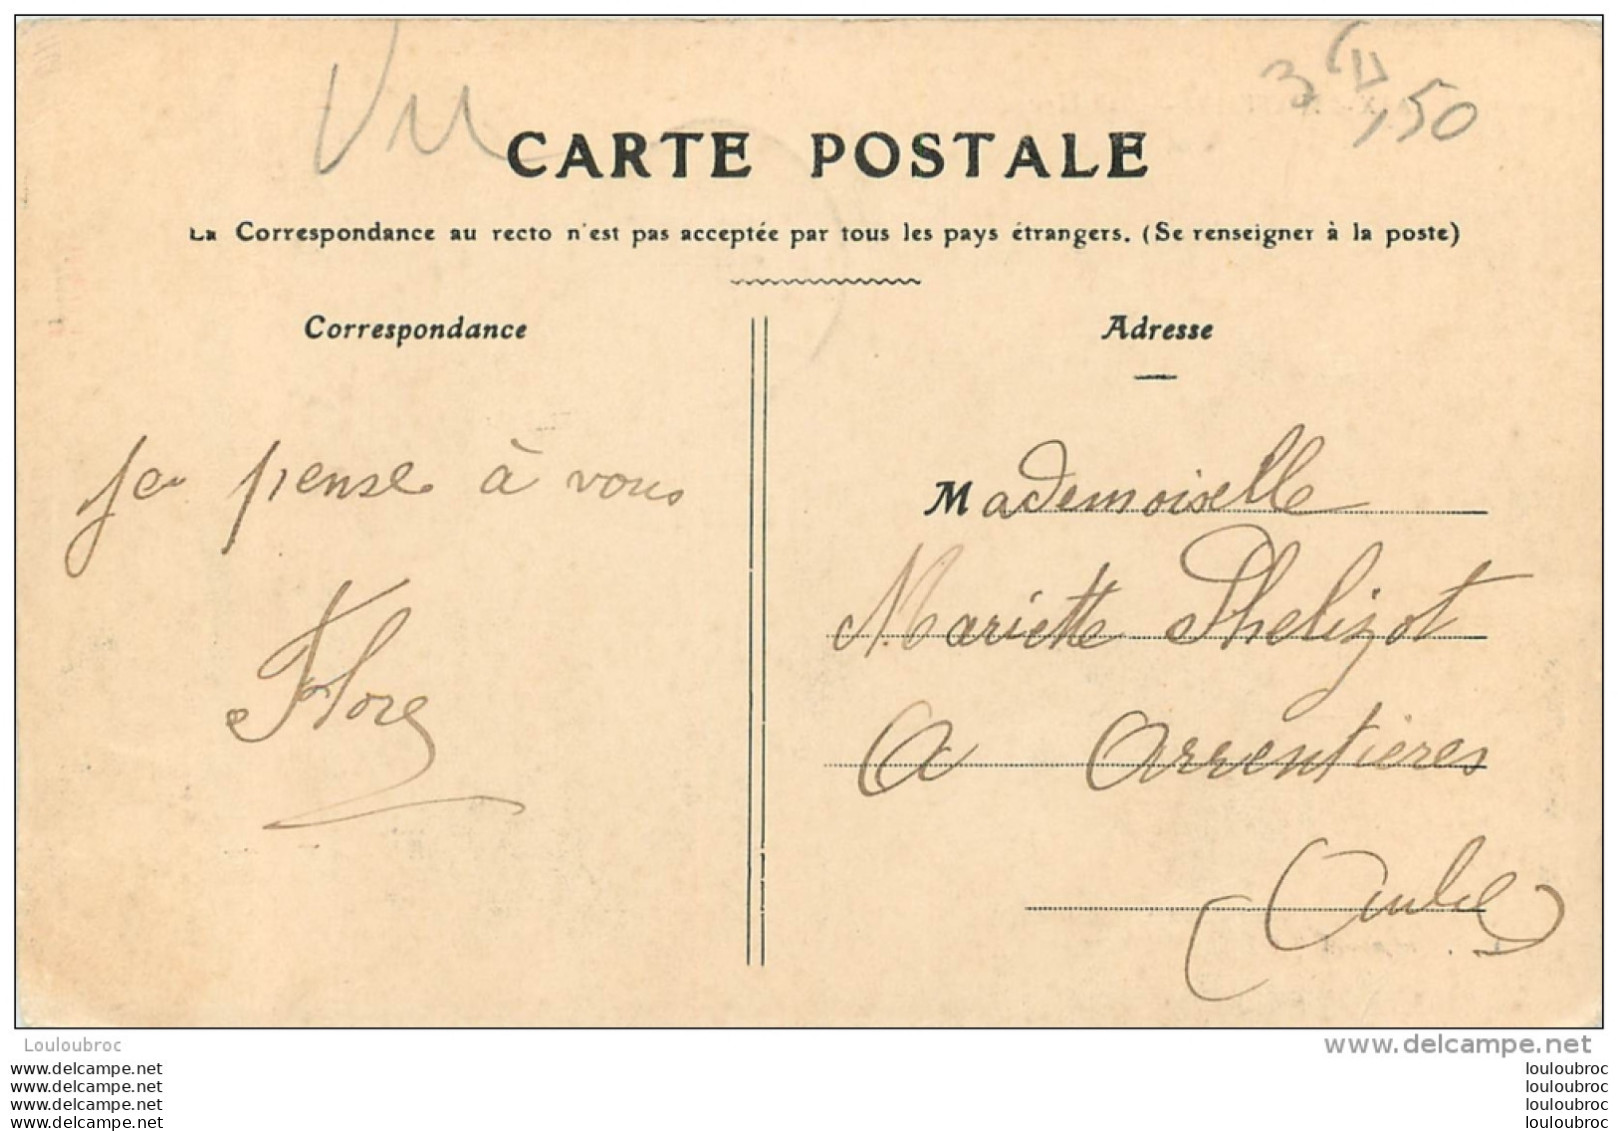 Vu
3
,50
CARTE POSTALE
La Correspondance au recto n'est pas acceptée par tous les pays étrangers. (Se renseigner à la poste)
Correspondance
Je pense à vous
Flore
Adresse
Mademoiselle
Mariette Phelizot
A Arrentières
(Aube)
Louloubroc
www.delcampe.net
www.delcampe.net
www.delcampe.net
www.delcampe.net
www.delcampe.net
louloubroc
louloubroc
louloubroc
louloubroc